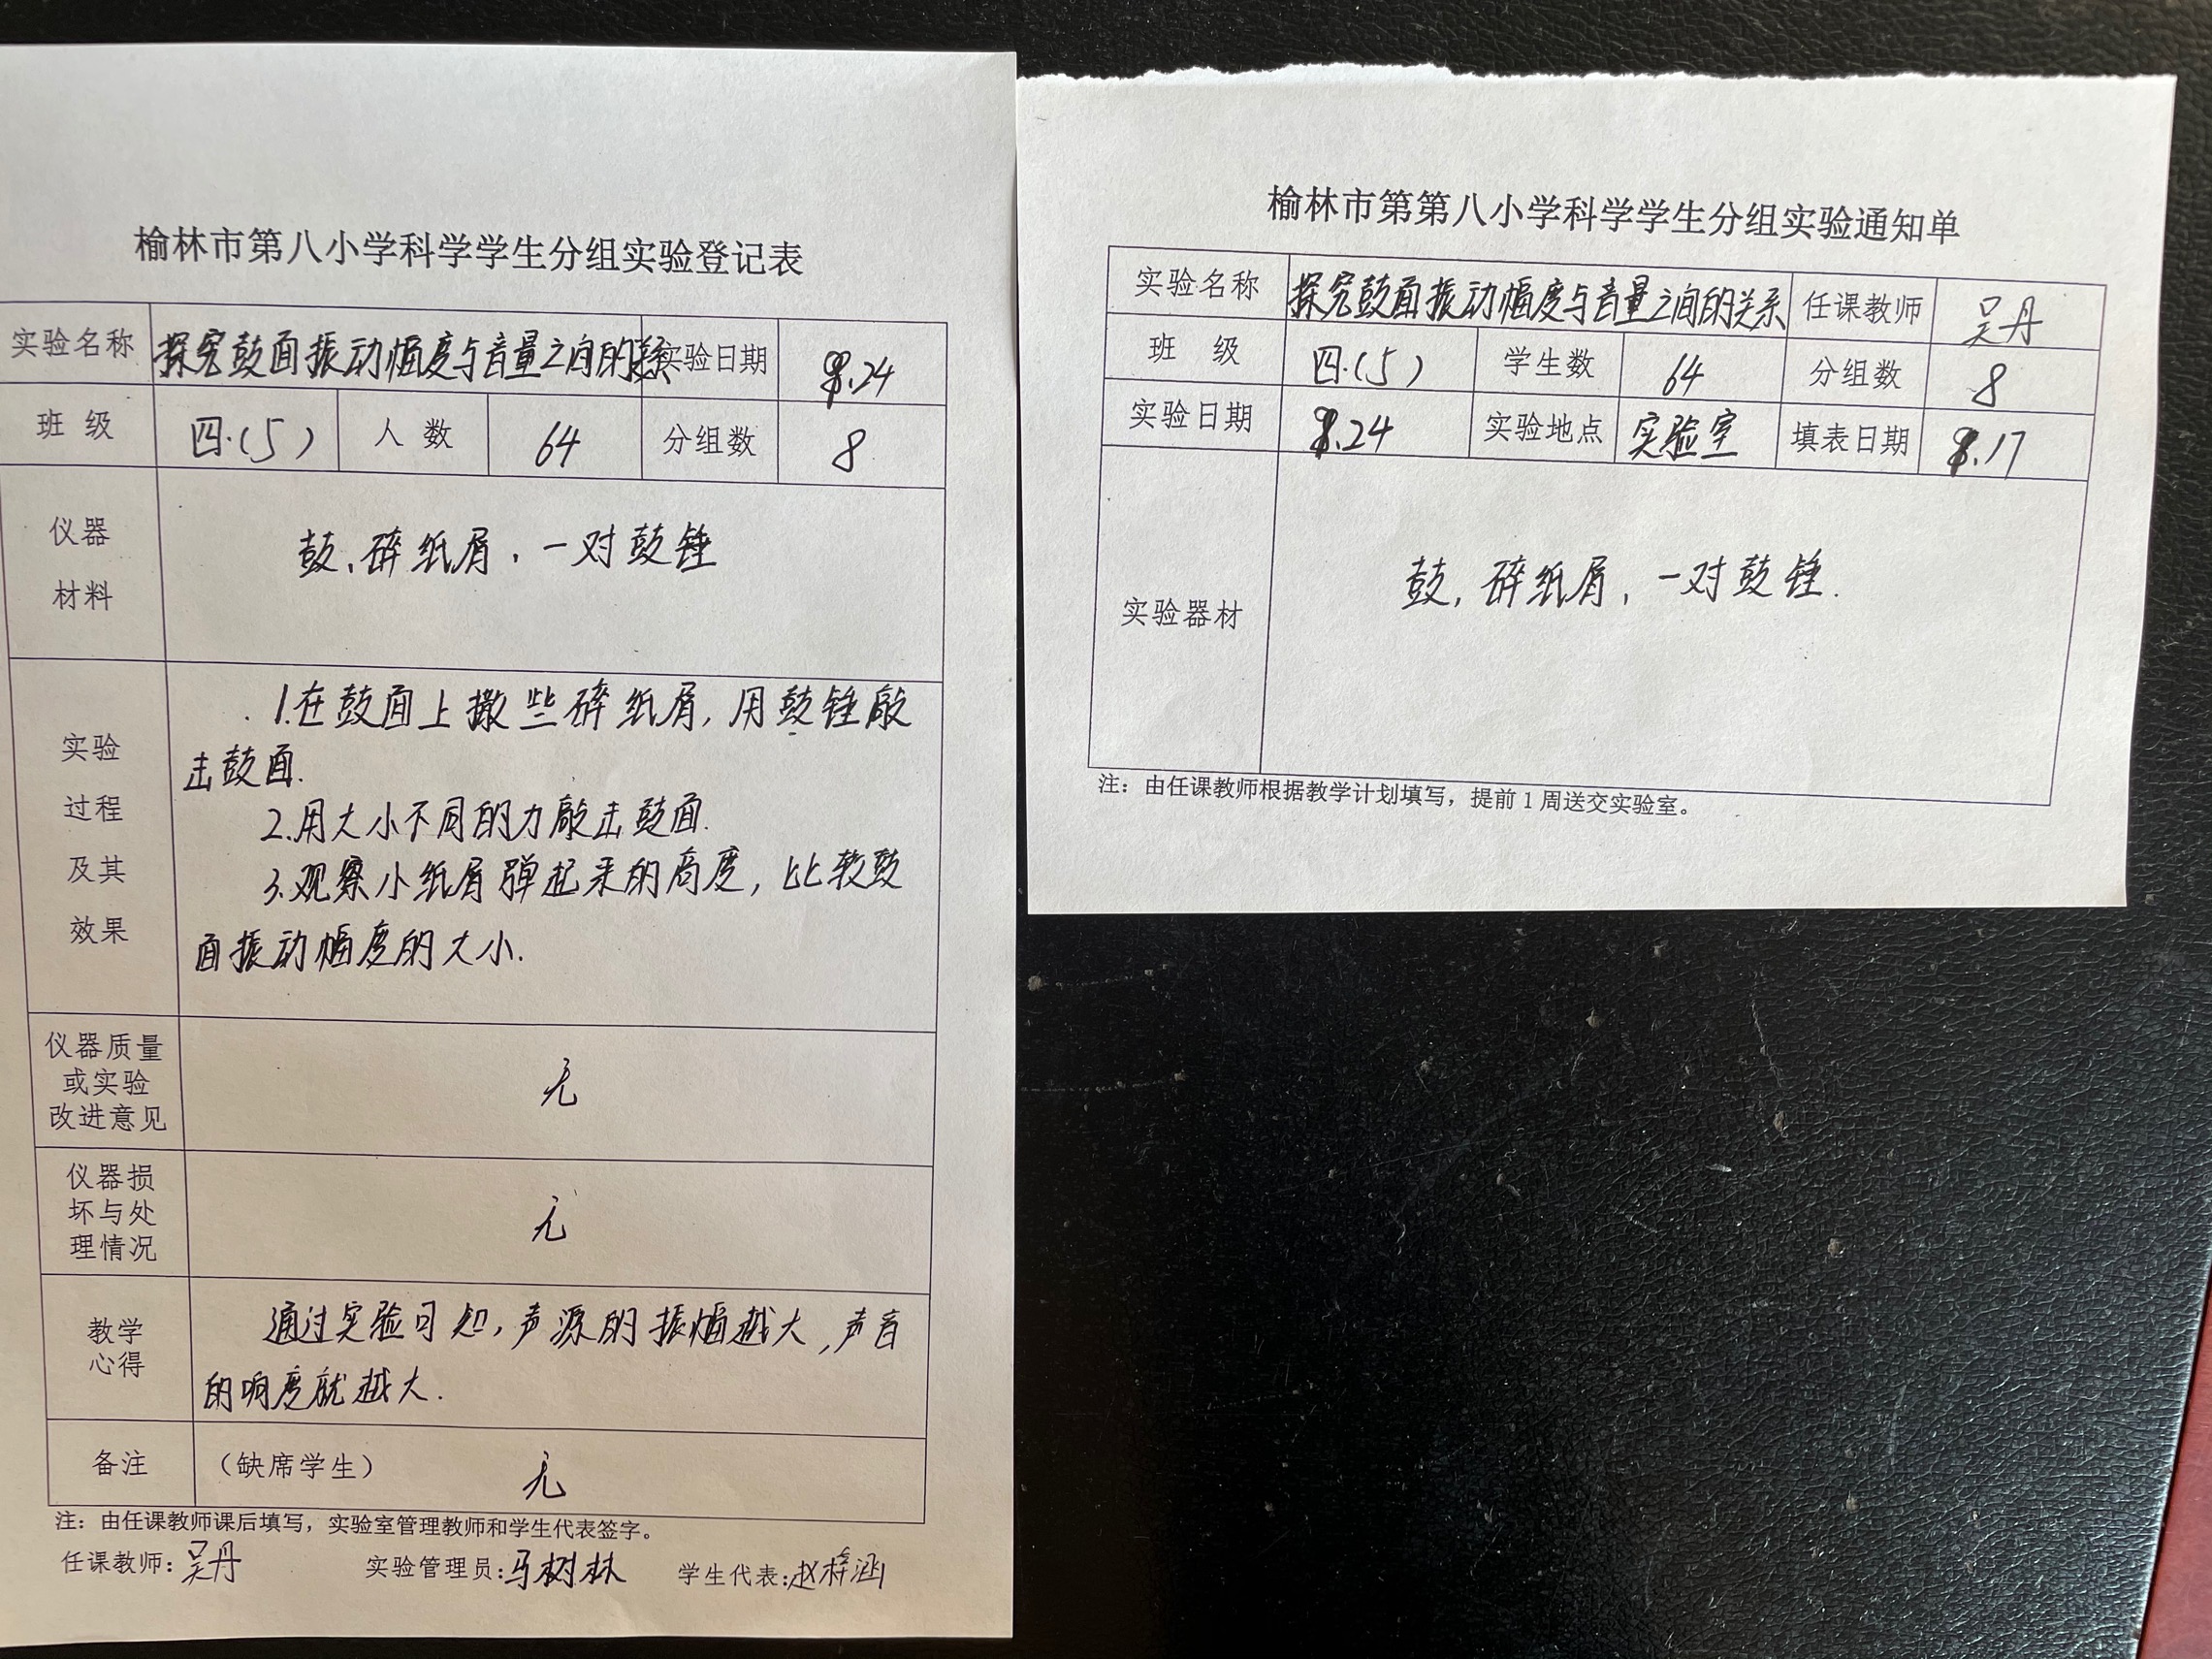 榆林市第八小学科学学生分组实验登记表
实验名称 探究鼓面振动幅度与音量之间的关系 实验日期 .24
班 级 四.(5) 人 数 64 分组数 8
仪器
材料
鼓、碎纸屑,一对鼓锤
实验
过程
及其
效果
1.在鼓面上撒些碎纸屑,用鼓锤敲
击鼓面.
2.用大小不同的力敲击鼓面.
3.观察小纸屑弹起来的高度,比较鼓
面振动幅度的大小.
仪器质量
或实验
改进意见
无
仪器损
坏与处
理情况
无
教学
心得
通过实验可知,声源的振幅越大,声音
的响度就越大.
备注 (缺席学生) 无
注:由任课教师课后填写,实验室管理教师和学生代表签字。
任课教师:吴丹 实验管理员:马树林 学生代表:赵梓涵
榆林市第第八小学科学学生分组实验通知单
实验名称 探究鼓面振动幅度与音量之间的关系 任课教师 吴丹
班 级 四.(5) 学生数 64 分组数 8
实验日期 .24 实验地点 实验室 填表日期 .17
实验器材 鼓,碎纸屑,一对鼓锤.
注:由任课教师根据教学计划填写,提前1周送交实验室。